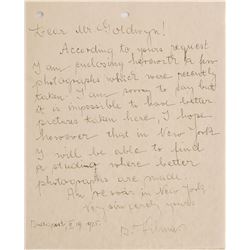 Dear Mr Goldwyn!
According to yours request
I am enclosing herewith a few
photographs which were recently
taken. I am sorry to say but
it is impossible to have better
pictures taken here, I hope
however that in New York
I will be able to find
a studing where better
photographs are made.
Au revoir in New York
Very sincerely yours
Budapest, 19 1925.